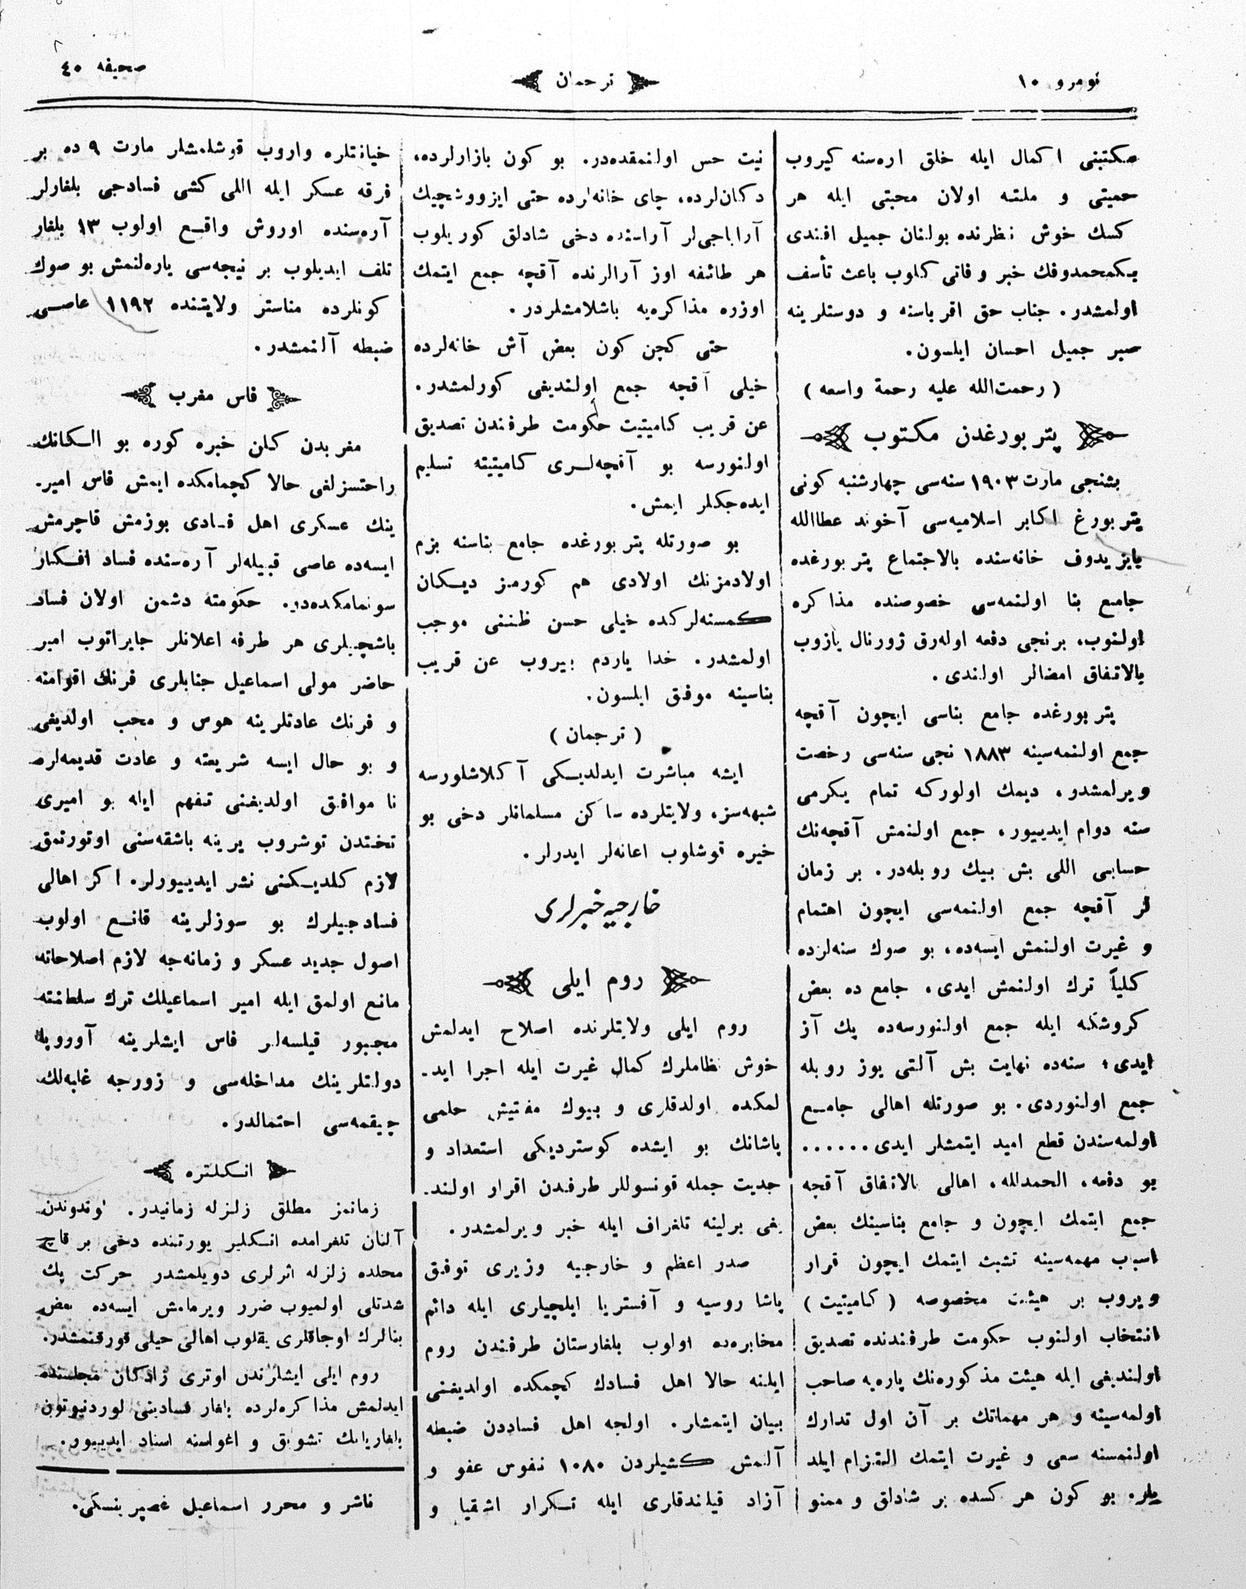 نومرو ١٠
ترجمان
صحيفه ٤٠
مكتبنى اكمال ايله خلق اره‌سنه كيروب
حميتى و ملته اولان محبتى ايله هر
كسك خوش نظرنده بولنان جميل افندى
بكمحمدوفك خبر وفاتى كلوب باعث تأسف
اولمشدر. جناب حق اقرباسنه و دوستلرينه
صبر جميل احسان ايلسون.
( رحمت‌الله عليه رحمة واسعه )
پتربورغدن مكتوب
بشنجى مارت ١٩٠٣ سنه‌سى چهارشنبه كونى
پتربورغ اكابر اسلاميه‌سى آخوند عطاالله
بايزيدوف خانه‌سنده بالاجتماع پتربورغده
جامع بنا اولنمه‌سى خصوصنده مذاكره
اولنوب، برنجى دفعه اوله‌رق ژورنال يازوب
بالاتفاق امضالر اولندى.
پتربورغده جامع بناسى ايچون آقچه
جمع اولنمه‌سينه ١٨٨٣ نجى سنه‌سى رخصت
ويرلمشدر، ديمك اولوركه تمام يكرمى
سنه دوام ايدييور، جمع اولنمش آقچه‌نك
حسابى اللى بش بيك روبله‌در. بر زمان
لر آقچه جمع اولنمه‌سى ايچون اهتمام
و غيرت اولنمش ايسه‌ده، بو صوك سنه‌لرده
كلياً ترك اولنمش ايدى، جامع ده بعض
كروشكه ايله جمع اولنورسه‌ده پك آز
ايدى؛ سنه‌ده نهايت بش آلتى يوز روبله
جمع اولنوردى. بو صورتله اهالى جامع
اولمه‌سندن قطع اميد ايتمشلر ايدى.......
بو دفعه، الحمدلله، اهالى بالاتفاق آقچه
جمع ايتمك ايچون و جامع بناسينك بعض
اسباب مهمه‌سينه تشبث ايتمك ايچون قرار
ويروب بر هيئت مخصوصه ( كاميتيت )
انتخاب اولنوب حكومت طرفندنده تصديق
اولنديغى ايله هيئت مذكوره‌نك پاره‌يه صاحب
اولمه‌سينه و هر مهماتك بر آن اول تدارك
اولنمسنه سعى و غيرت ايتمك التزام ايلد
يلر. بو كون هر كسده بر شادلق و ممنو
نيت حس اولنمقده‌در. بو كون بازارلرده،
دكان‌لرده، چاى خانه‌لرده حتى ايزووشچيك
آراباجى‌لر آراسنده دخى شادلق كوريلوب
هر طائفه اوز آرالرنده آقچه جمع ايتمك
اوزره مذاكره‌يه باشلامشلردر.
حتى كچن كون بعض آش خانه‌لرده
خيلى آقچه جمع اولنديغى كورلمشدر.
عن قريب كاميتيت حكومت طرفندن تصديق
اولنورسه بو آقچه‌لرى كاميتيته تسليم
ايده‌جكلر ايمش.
بو صورتله پتربورغده جامع بناسنه بزم
اولادمزنك اولادى هم كورمز ديكان
كمسنه‌لركده خيلى حسن ظننى موجب
اولمشدر. خدا ياردم بيروب عن قريب
بناسينه موفق ايلسون.
( ترجمان )
ايشه مباشرت ايدلديكى آكلاشلورسه
شبهه‌سز، ولايتلرده ساكن مسلمانلر دخى بو
خيره قوشلوب اعانه‌لر ايدرلر.
خارجيه خبرلرى
روم ايلى
روم ايلى ولايتلرنده اصلاح ايدلمش
خوش نظاملرك كمال غيرت ايله اجرا ايد-
لمكده اولدقلرى و بيوك مفتيش حلمى
پاشانك بو ايشده كوسترديكى استعداد و
جديت جمله قونسوللر طرفندن اقرار اولند-
يغى برلينه تلغراف ايله خبر ويرلمشدر.
صدر اعظم و خارجيه وزيرى توفيق
پاشا روسيه و آفستريا ايلچيلرى ايله دائم
مخابره‌ده اولوب بلغارستان طرفندن روم
ايلنه حالا اهل فسادك كچمكده اولديغنى
بيان ايتمشلر. اولجه اهل فساددن ضبطه
آلنمش كشيلردن ١٠٨٠ نفوس عفو و
آزاد قيلندقلرى ايله تكرار اشقيا و
خيانتلره واروب قوشلمشلر مارت ٩ ده بر
فرقه عسكر ايله اللى كشى فسادجى بلغارلر
آره‌سنده اوروش واقع اولوب ١٣ بلغار
تلف ايديلوب بر نيجه‌سى ياره‌لنمش بو صوك
كونلرده مناستر ولايتنده ١١٩٢ عاصى
ضبطه آلنمشدر.
فاس مغرب
مغربدن كلن خبره كوره بو الكانك
راحتسزلغى حالا كچمامكده ايمش فاس امير-
ينك عسكرى اهل فسادى بوزمش قاچرمش
ايسه‌ده عاصى قبيله‌لر آره‌سنده فساد افكار
سونمامكده‌در. حكومته دشمن اولان فساد
باشچيلرى هر طرفه اعلانلر جايراتوب امير
حاضر مولى اسماعيل جنابلرى فرنك اقوامنه
و فرنك عادتلرينه هوس و محب اولديغى
و بو حال ايسه شريعته و عادت قديمه‌لره
نا موافق اولديغنى تفهم ايله بو اميرى
تختدن توشروب يرينه باشقه‌سنى اوتورتمق
لازم كلديكنى نشر ايدييورلر. اكر اهالى
فسادجيلرك بو سوزلرينه قانع اولوب
اصول جديد عسكر و زمانه‌جه لازم اصلاحاته
مانع اولمق ايله امير اسماعيلك ترك سلطنته
مجبور قيلسه‌لر فاس ايشلرينه آوروپا
دولتلرينك مداخله‌سى و زورجه غابه‌لك
چيقمه‌سى احتمالدر.
انكلتره
زمانمز مطلق زلزله زمانيدر. لوندوندن
آلنان تلغرامده انكليز يورتنده دخى بر قاچ
محلده زلزله اثرلرى دويلمشدر حركت پك
شدتلى اولميوب ضرر ويرمامش ايسه‌ده بعض
بنالرك اوجاقلرى يقلوب اهالى خيلى قورقنمشدر.
روم ايلى ايشلرندن اوترى ژادكان مجلسنده
ايدلمش مذاكره‌لرده بلغار فسادينى لوردنيوتون
بلغاريانك تشويق و اغواسنه اسناد ايدييور.
ناشر و محرر اسماعيل غصپرينسكى.